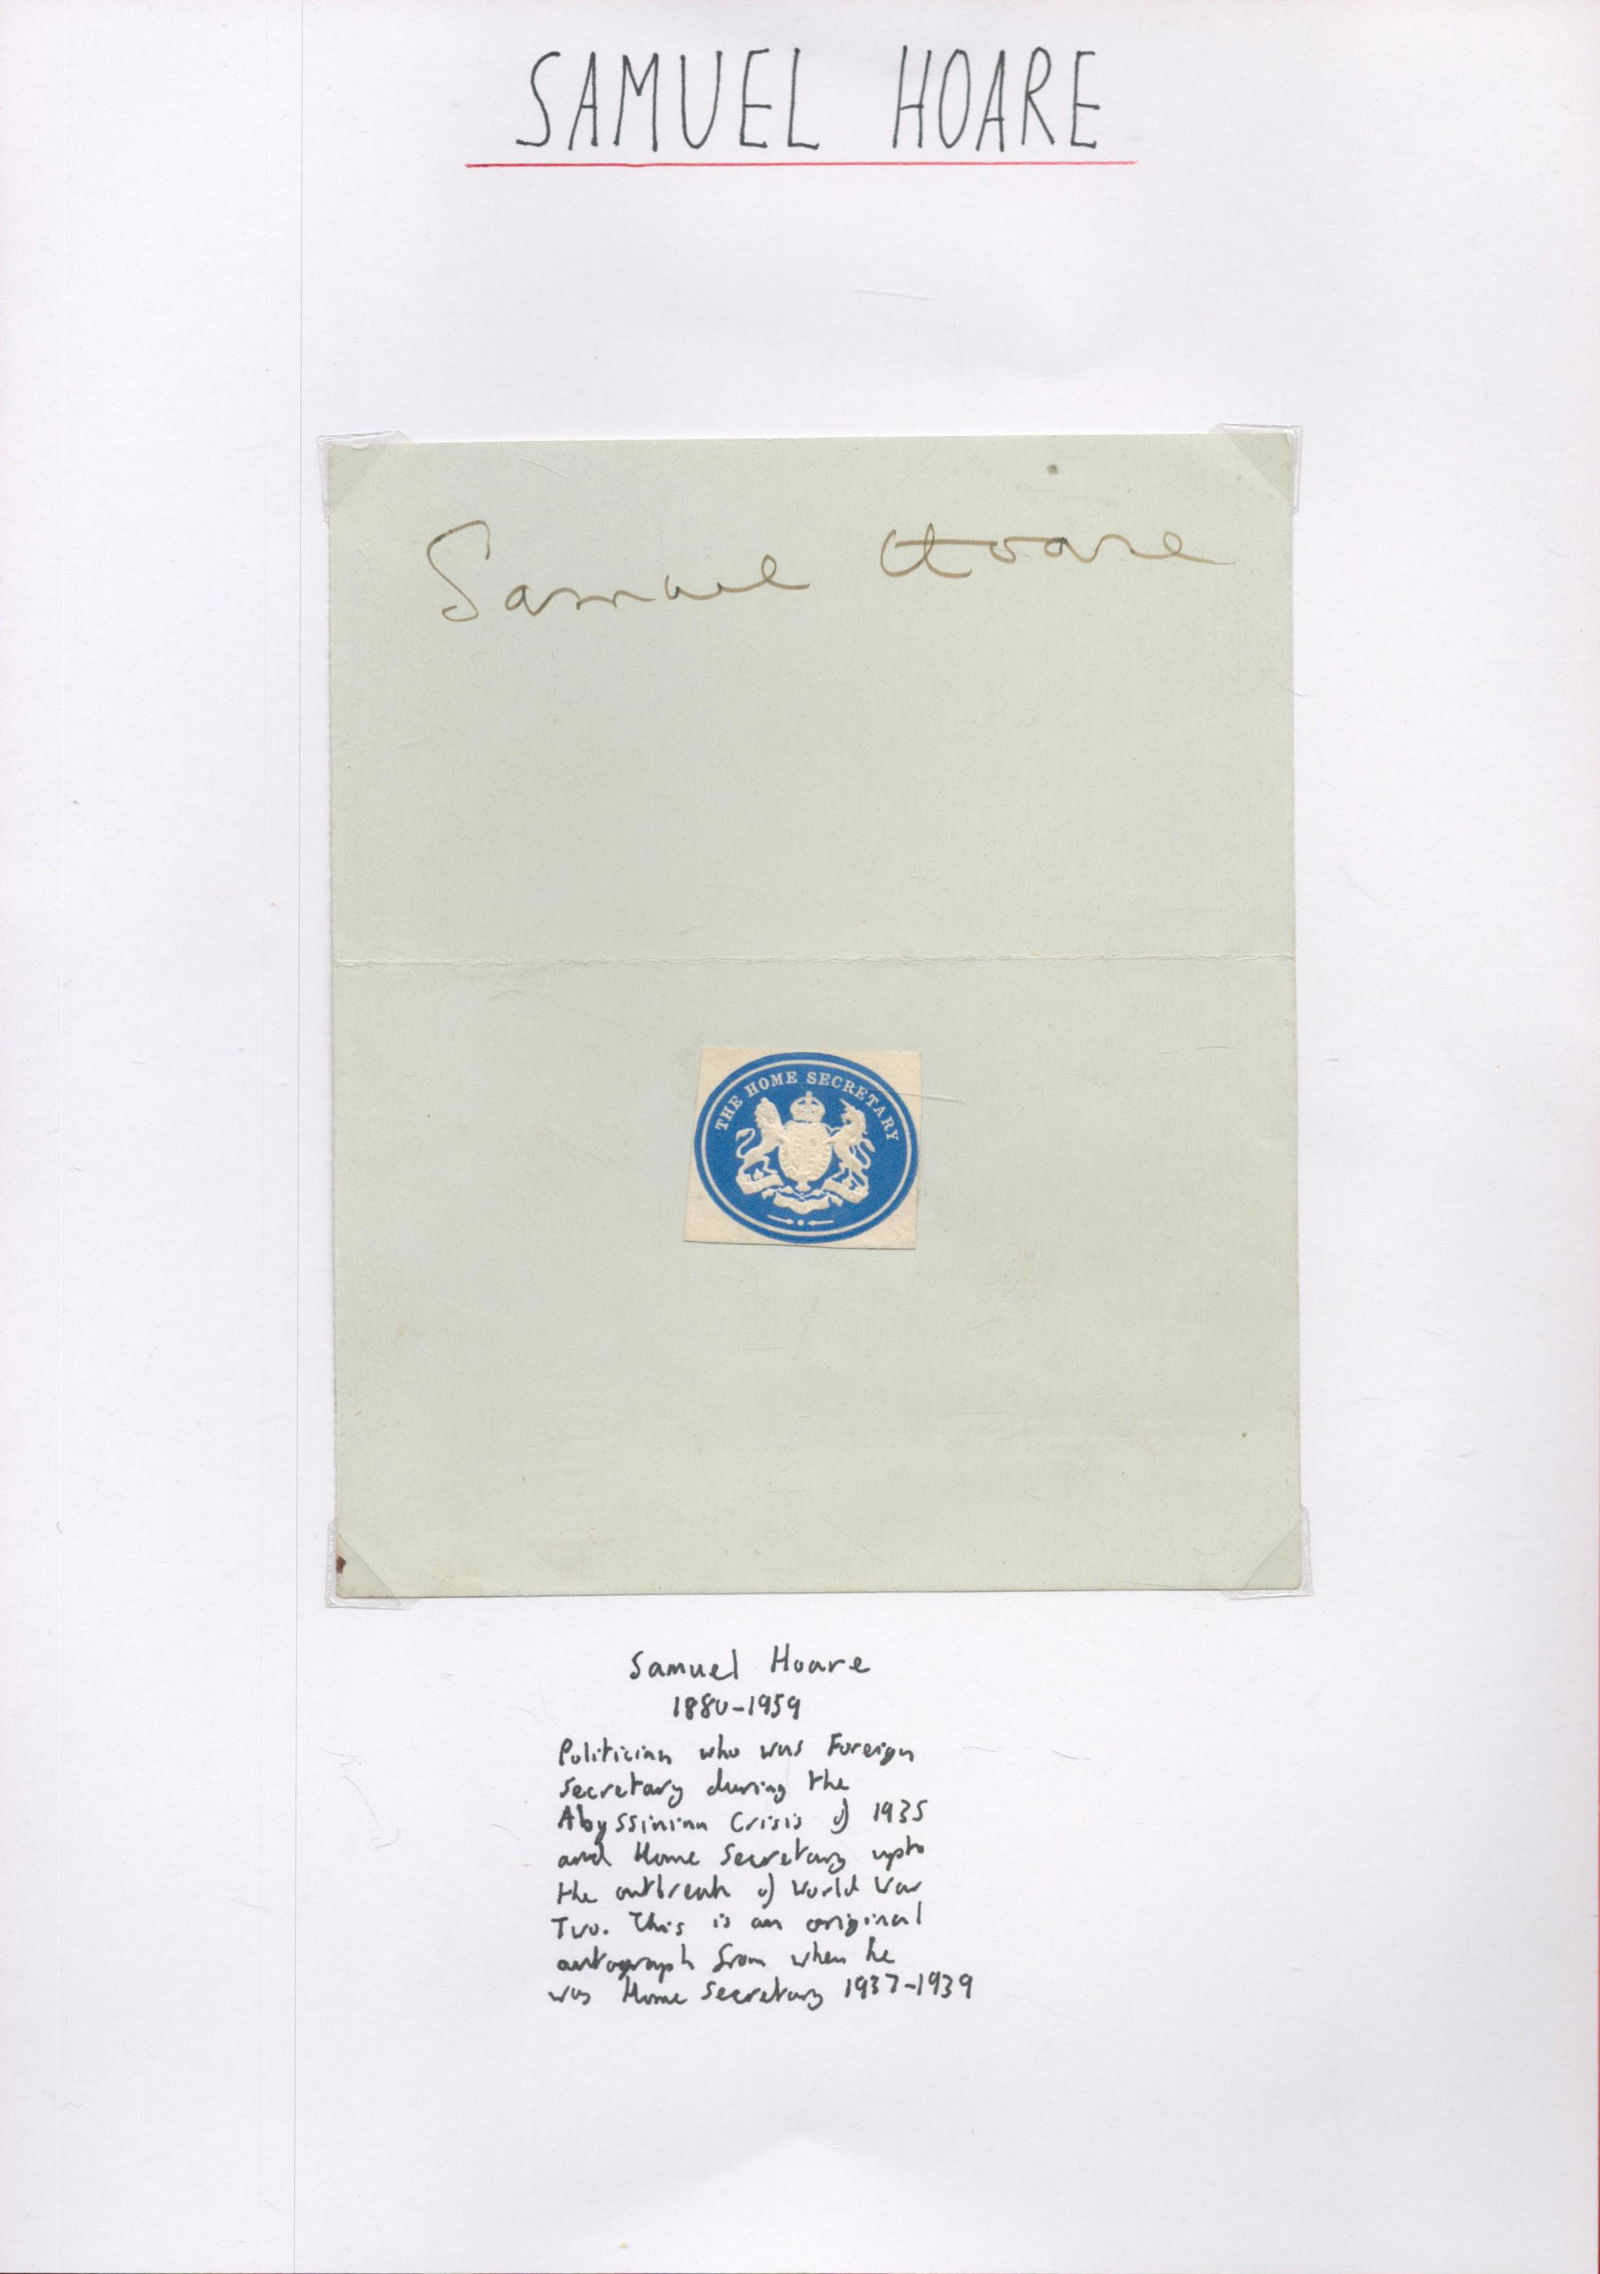 SAMUEL HOARE
Samuel Hoare
THE HOME SECRETARY
Samuel Hoare
1880-1959
Politician who was Foreign
Secretary during the
Abyssinian Crisis of 1935
and Home Secretary upto
the outbreak of World War
Two. This is an original
autograph from when he
was Home Secretary 1937-1939